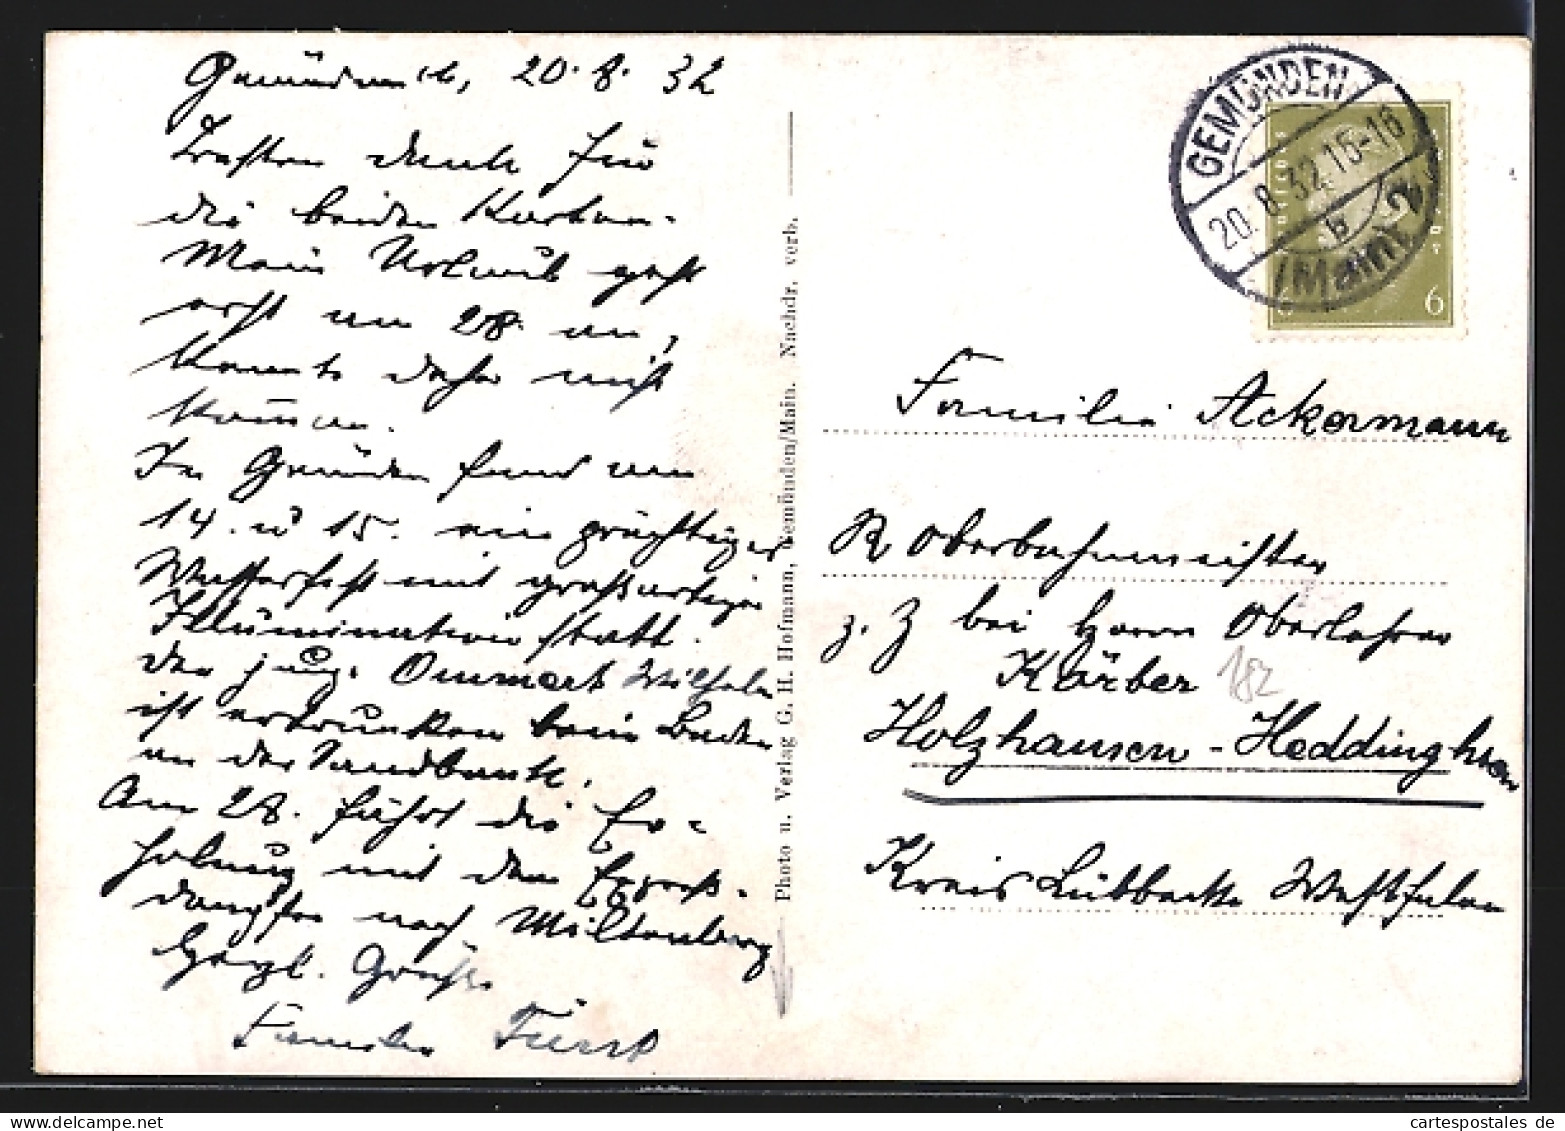 Gemünden, 20.8.32
Besten Dank für
die beiden Karten.
Mein Urlaub geht
erst am 28. an,
konnte daher nicht
kommen.
In Gemünden fand am
14. u 15. ein prächtiges
Wasserfest mit großartiger
Illumination statt.
Der jug. Ommert Wilhelm
ist ertrunken beim Baden
an der Sandbank.
Am 28. fährt die Er-
holung mit dem Expreß-
dampfer nach Miltenberg
Herzl. Grüße
Familie Fürst
Photo u. Verlag G. H. Hofmann, Gemünden/Main. Nachdr. verb.
GEMÜNDEN
20.8.32.15-16
b
(Main) 2
6
Familie Ackermann
R Oberbahnmeister
z. Z bei Herrn Oberlehrer
Kärber
182
Holzhausen - Heddinghsen
Kreis Lübbecke Westfalen
cartespostales de